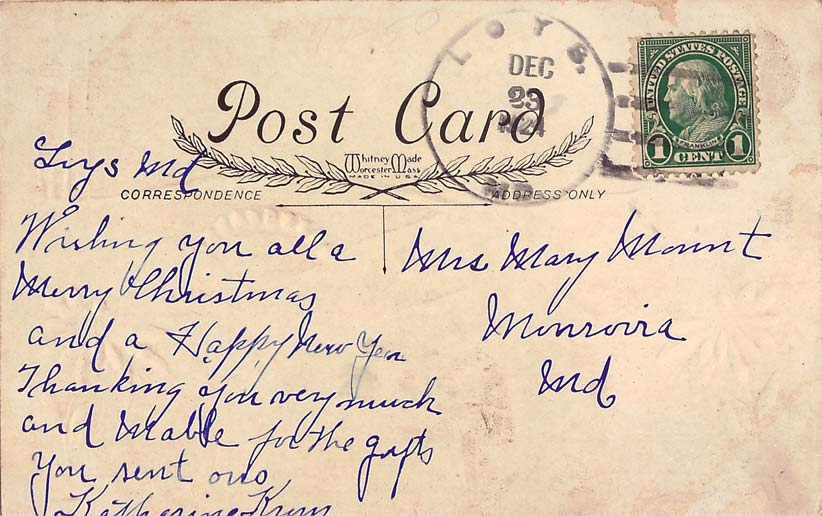 LOYS.
DEC
23
1924
UNITED STATES POSTAGE
FRANKLIN
1 CENT 1
Post Card
Whitney Made
Worcester, Mass
MADE IN U.S.A.
CORRESPONDENCE
ADDRESS ONLY
Loys Md
Wishing you all a
Merry Christmas
and a Happy New Year
Thanking you very much
and Mable for the gifts
You sent
Katharine
Mrs Mary Mount
Monrovia
Md